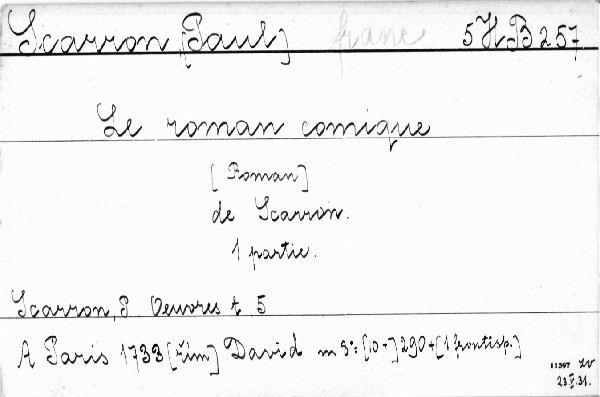 Scarron, [Paul] franc 5HB257
Le roman comique
[Roman]
de Scarron.
1 partie.
Scarron, P. Oeuvres t. 5
A Paris 1733 [řím] David m 8º: [10-] 290 + [1 frontisp.]
11397
23.V.31.